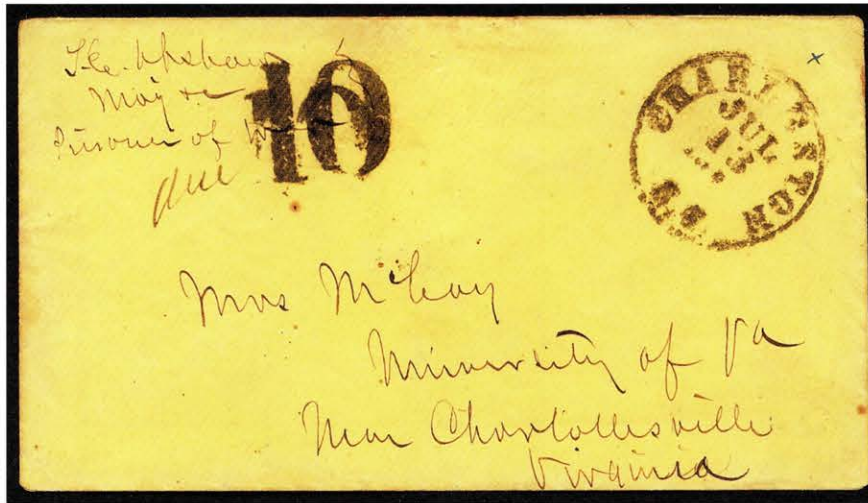 Prisoner of War
due
10
CHARLESTON
JUL
13
Mrs McCoy
University of Va
Near Charlottesville
Virginia
x